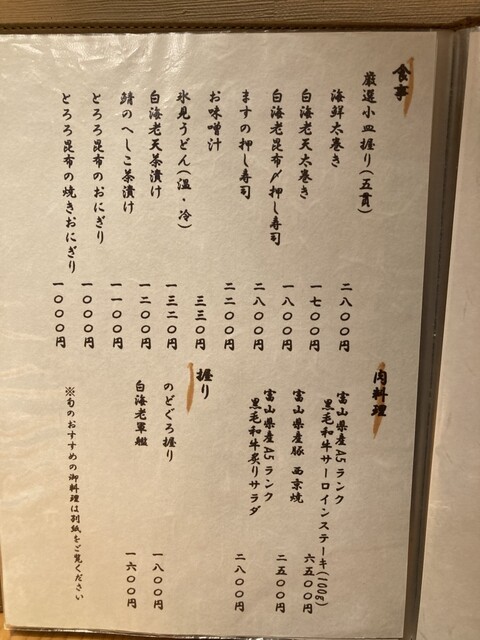 食事
厳選小皿握り(五貫) 二八〇〇円
海鮮太巻き 一七〇〇円
白海老天太巻き 一八〇〇円
白海老昆布〆押し寿司 二八〇〇円
ますの押し寿司 二二〇〇円
お味噌汁 三三〇円
氷見うどん(温・冷) 一三二〇円
白海老天茶漬け 一二〇〇円
鯖のへしこ茶漬け 一一〇〇円
とろろ昆布のおにぎり 一〇〇〇円
とろろ昆布の焼きおにぎり 一〇〇〇円
肉料理
富山県産A5ランク
黒毛和牛サーロインステーキ(100g) 六五〇〇円
富山県産豚 西京焼 二五〇〇円
富山県産A5ランク
黒毛和牛炙りサラダ 二八〇〇円
握り
のどぐろ握り 一八〇〇円
白海老軍艦 一六〇〇円
※旬のおすすめの御料理は別紙をご覧ください